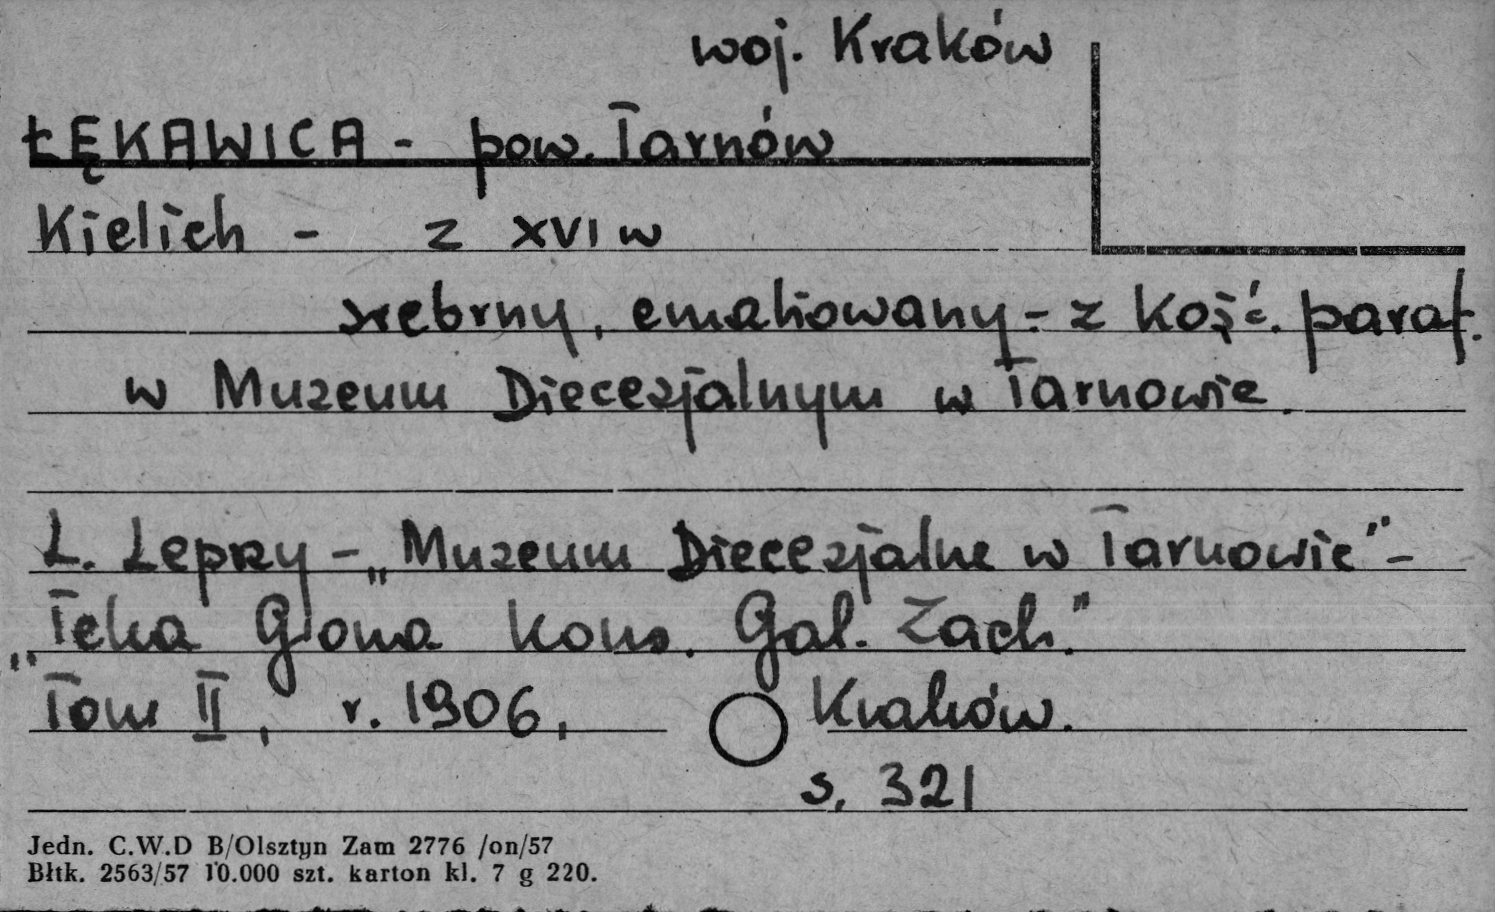 woj. Kraków
ŁĘKAWICA - pow. Tarnów
Kielich - z XVI w
srebrny, emaliowany - z Kość. paraf.
w Muzeum Diecezjalnym w Tarnowie.
L. Lepszy - „Muzeum Diecezjalne w Tarnowie" -
„Teka Grona Kons. Gal. Zach."
Tom II, r. 1906, Kraków.
s. 321
Jedn. C.W.D B/Olsztyn Zam 2776 /on/57
Błtk. 2563/57 10.000 szt. karton kl. 7 g 220.